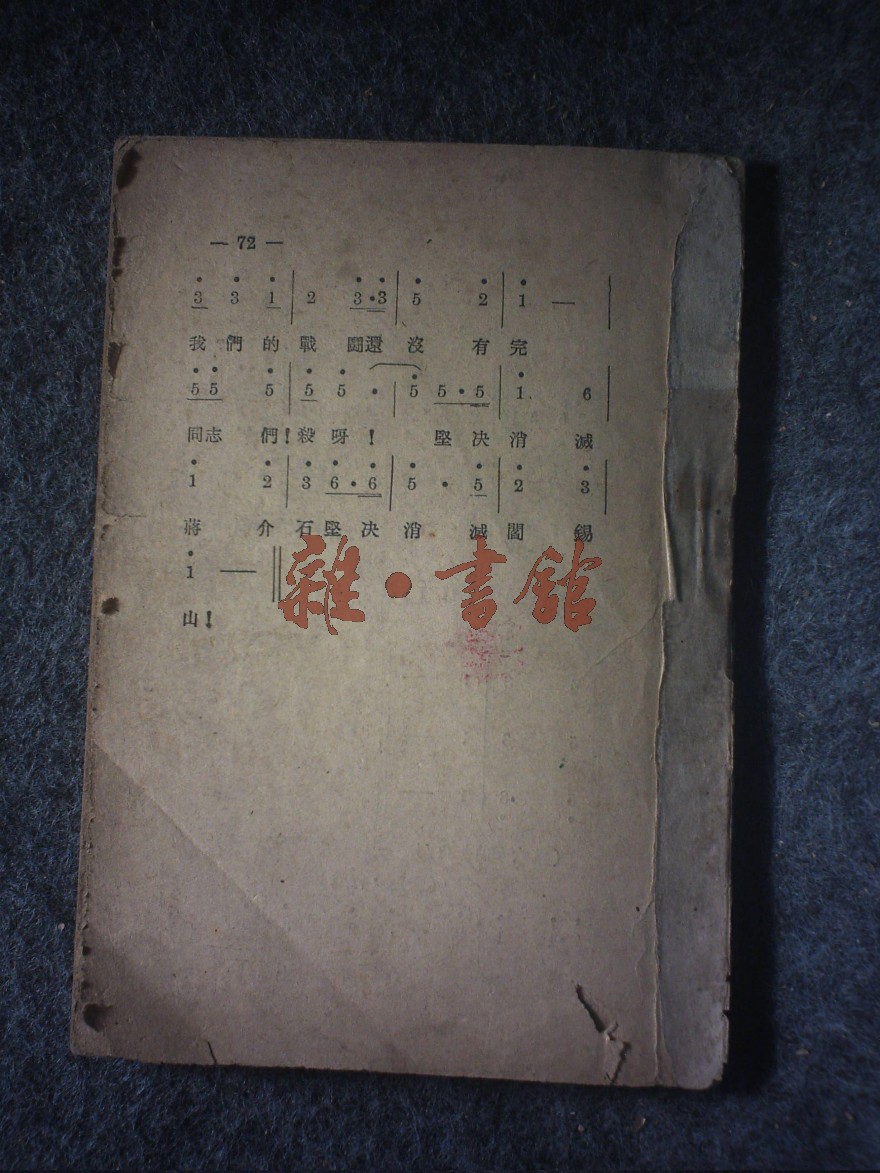 — 72 —
3 3 1 | 2 3·3 | 5 2 | 1 — |
我們的戰鬪還沒有完
5 5 5 | 5 5 · | 5 5·5 | 1 6 |
同志們！殺呀！堅决消滅
1 2 | 3 6·6 | 5 · 5 | 2 3
蔣介石堅决消滅閻錫
1 — ‖
山！
雜·書館